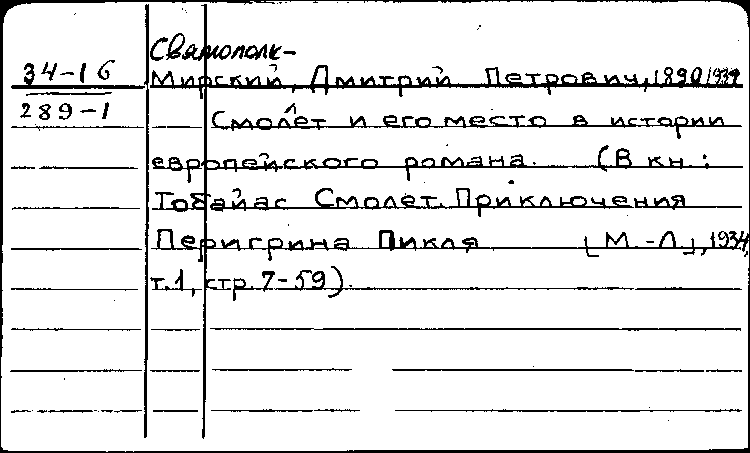 Святополк-
34-16 Мирский, Дмитрий Петрович, 1890 1939
289-1 Смоллет и его место в истории
европейского романа. (В кн.:
Тобайас Смолет. Приключения
Перигрина Пикля [М.-Л], 1934,
т.1, стр. 7-59).